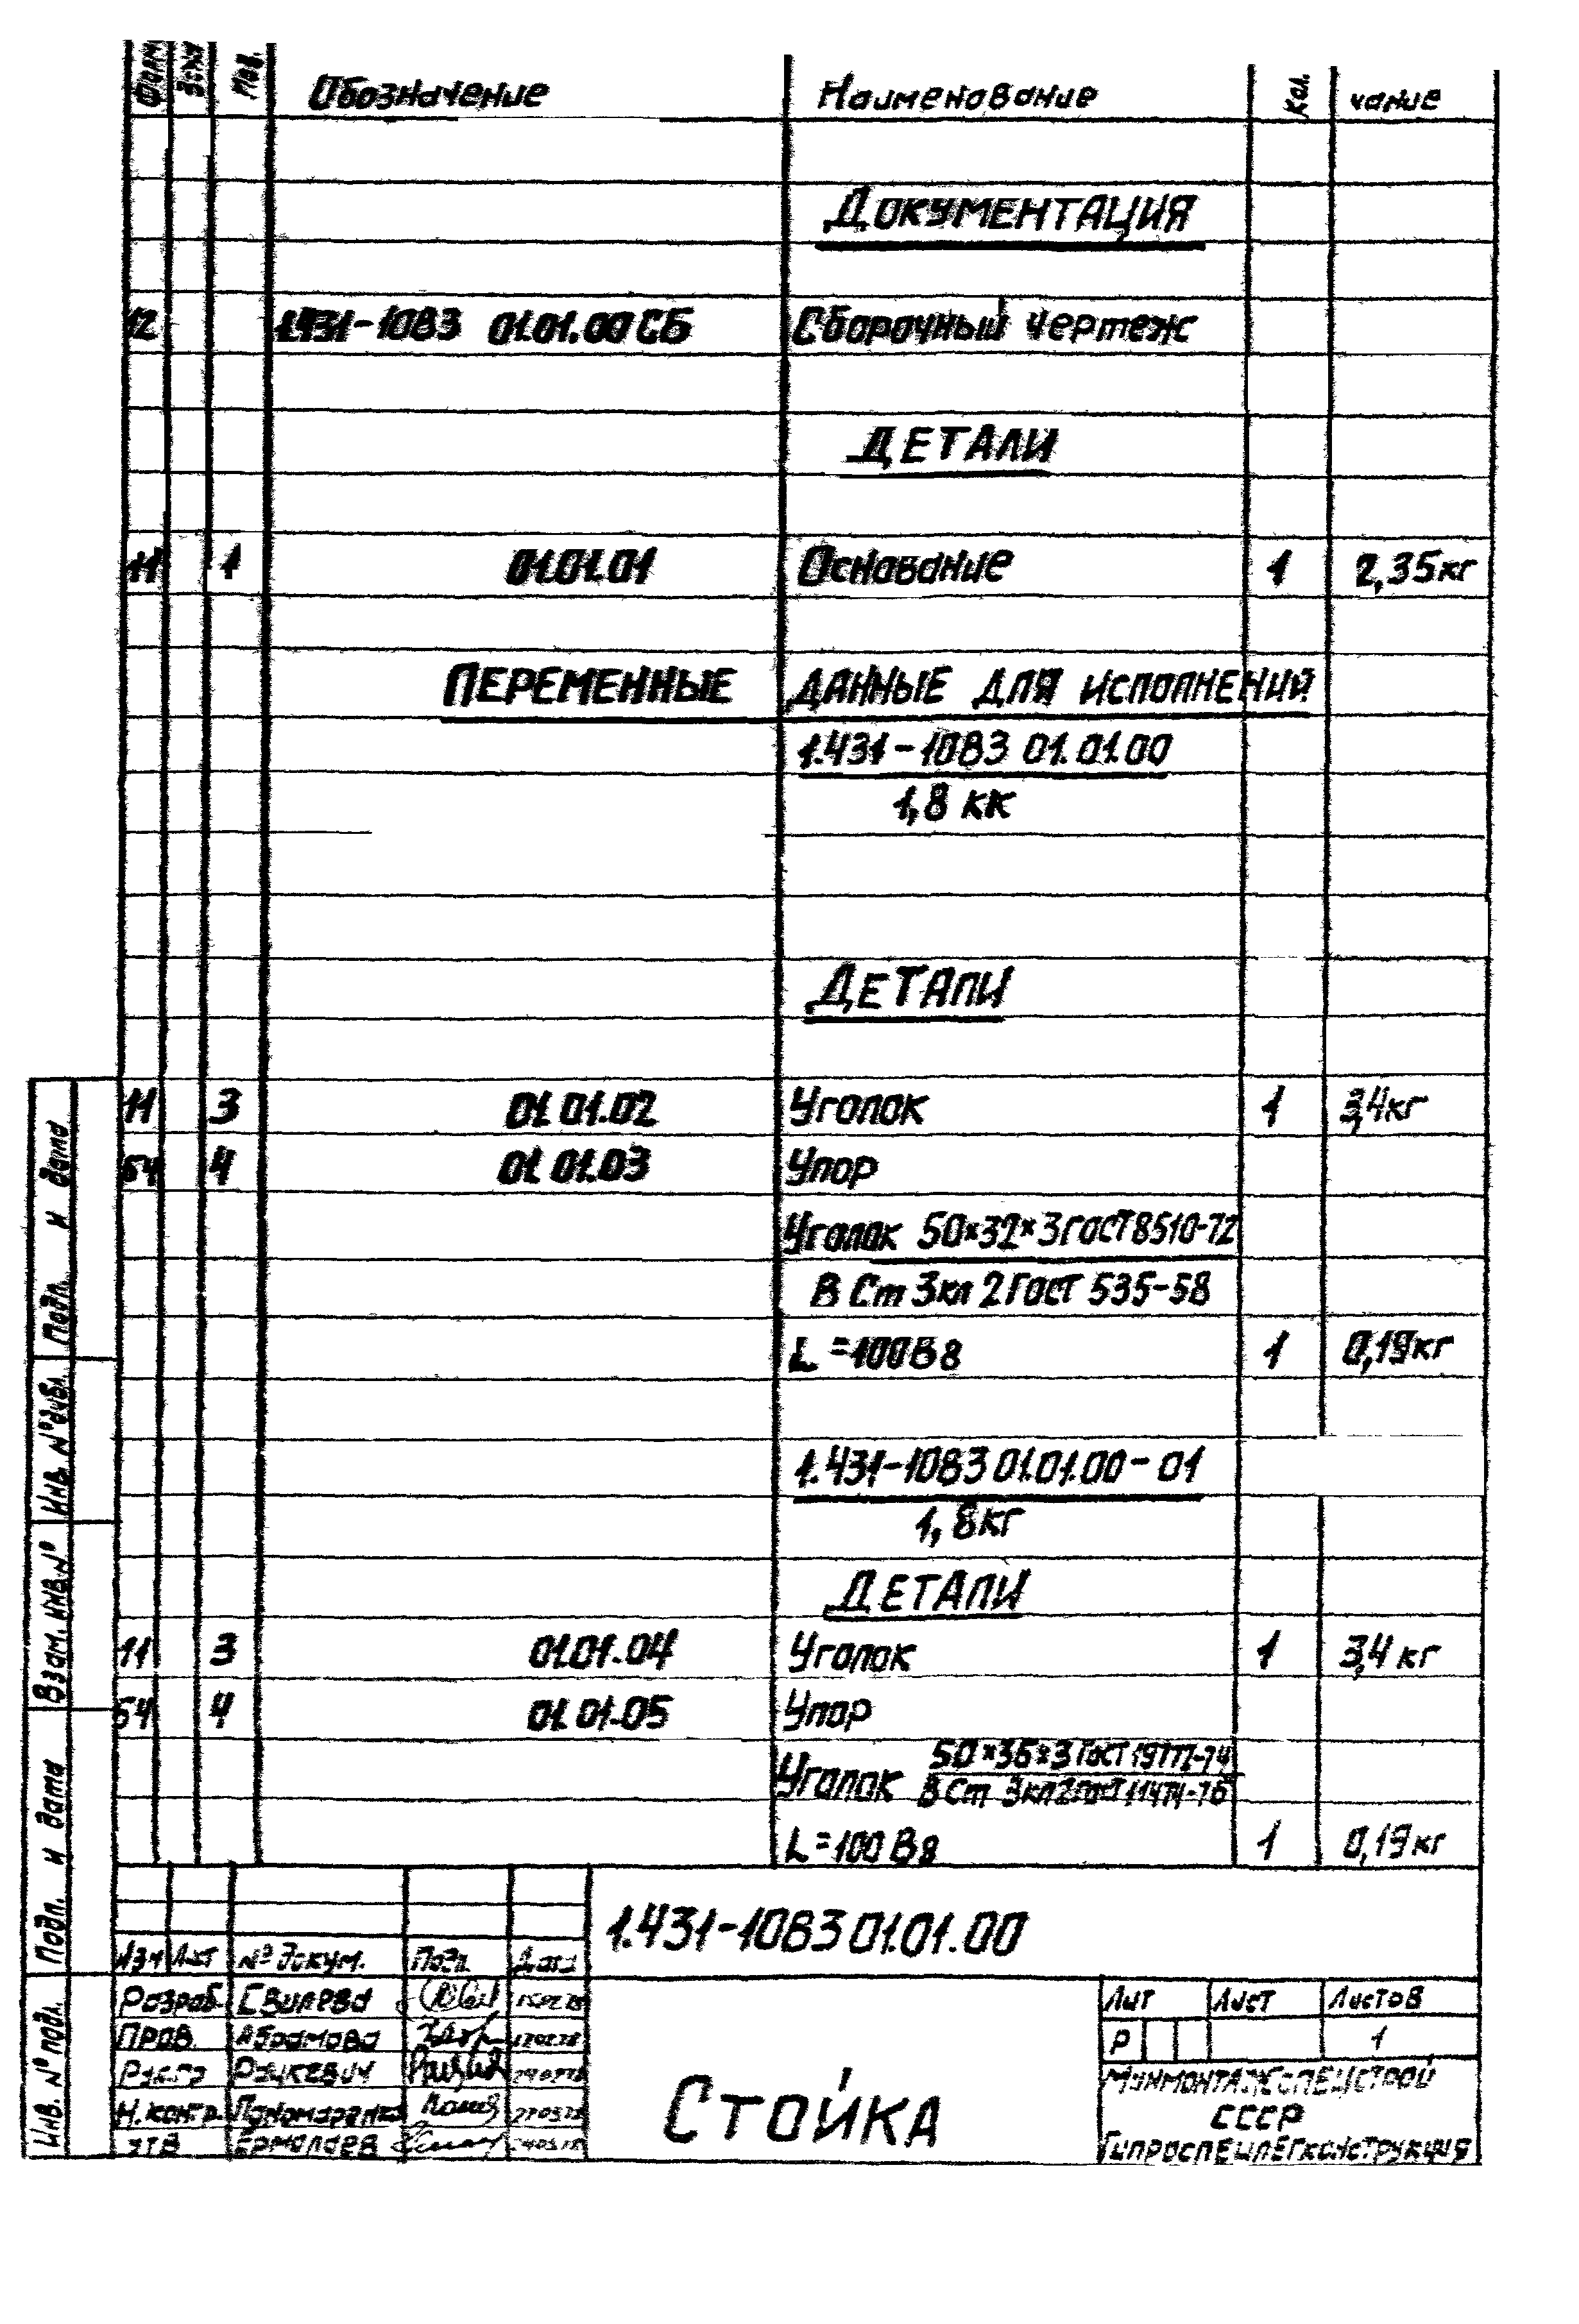 Форм Зона Поз. Обозначение Наименование Кол. чание
ДОКУМЕНТАЦИЯ
12 1.431-1083 01.01.00 СБ Сборочный чертеж
ДЕТАЛИ
11 1 01.01.01 Основание 1 2,35кг
ПЕРЕМЕННЫЕ ДАННЫЕ ДЛЯ ИСПОЛНЕНИЙ
1.431-1083 01.01.00
1,8 кк
ДЕТАЛИ
11 3 01.01.02 Уголок 1 3,4кг
БЧ 4 01.01.03 Упор
Уголок 50×32×3 ГОСТ 8510-72
В Ст 3кп 2 ГОСТ 535-58
L=100 В8 1 0,19кг
1.431-1083 01.01.00-01
1,8кг
ДЕТАЛИ
11 3 01.01.04 Уголок 1 3,4 кг
БЧ 4 01.01.05 Упор
50×36×3 ГОСТ 19772-74
Уголок
В Ст 3кп2 ГОСТ 11474-76
L=100 В8 1 0,19кг
1.431-1083 01.01.00
Изм Лист № докум. Подп. Дата
Разраб. Лит Лист Листов
Пров. Абрамова Р 1
Рацкевич Минмонтажспецстрой
Н.контр. Пономаренко СССР
УТВ Ермолаев Гипроспецлегконструкция
СТОЙКА
Подп. и дата
Инв. № дубл.
Взам. инв. №
Подп. и дата
Инв. № подл.